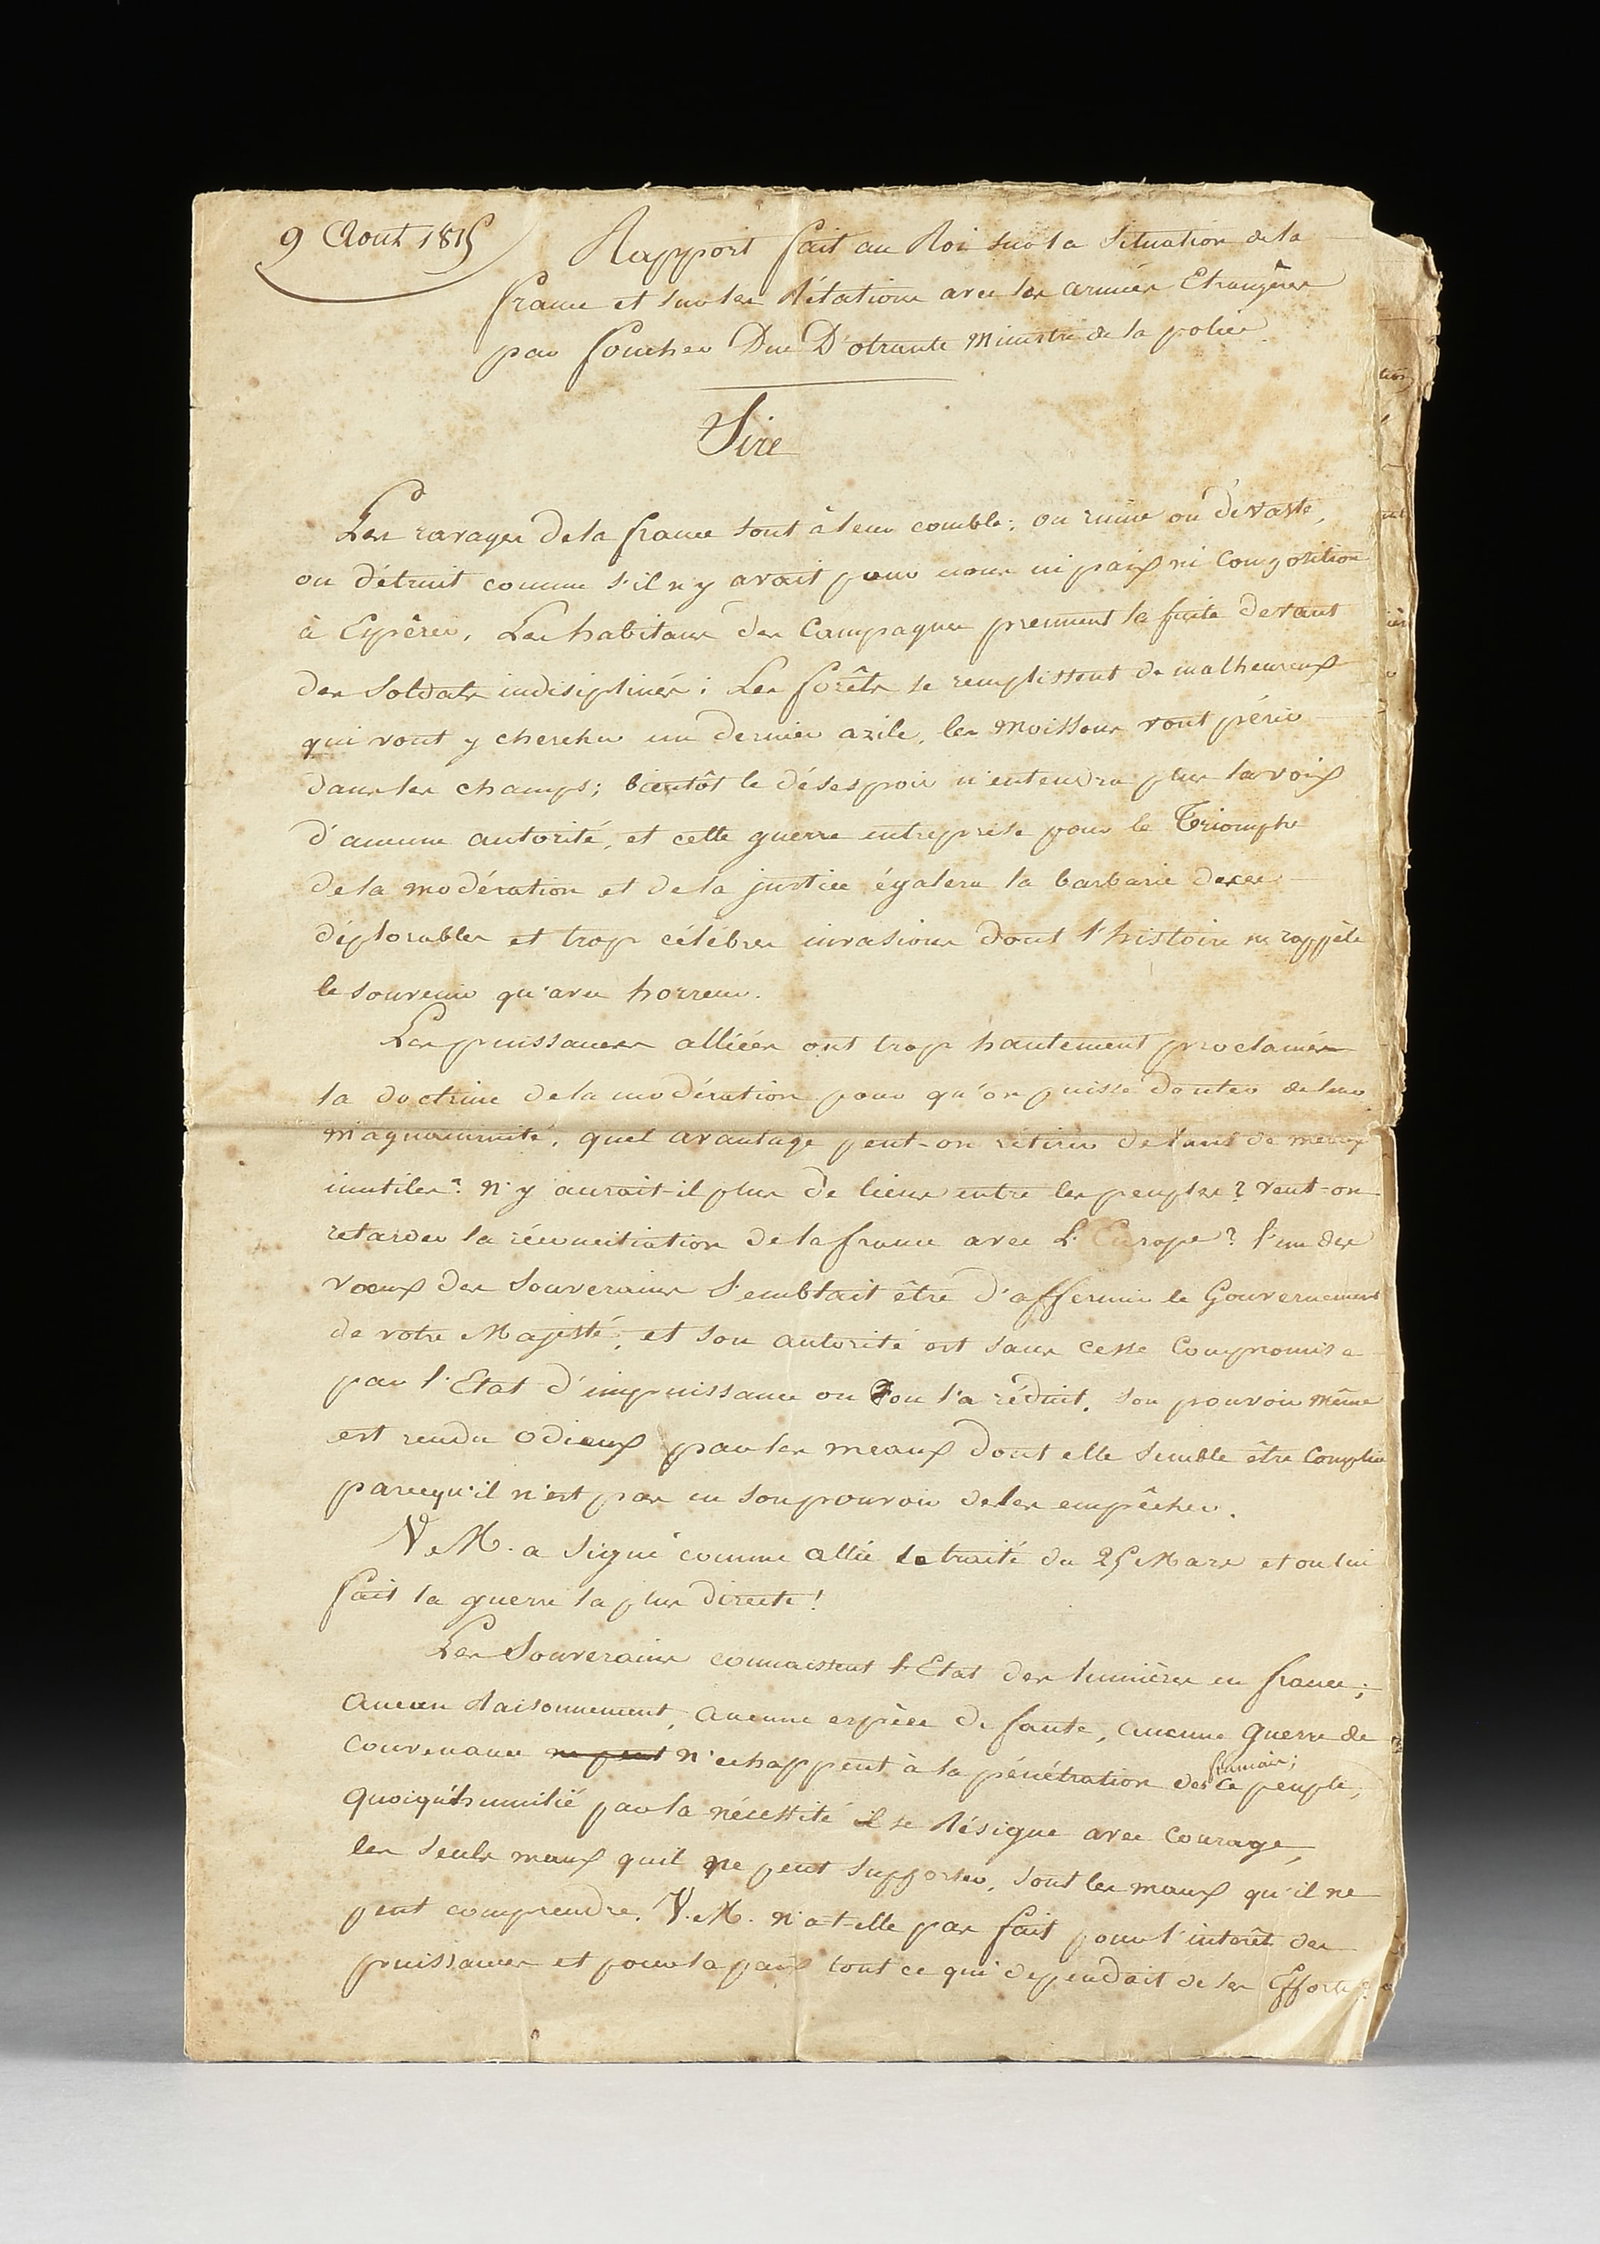 9 Aout 1815
Rapport fait au Roi sur la Situation de la
france et sur les Rélations avec les armées Etrangères
par foucher Duc D'otrante Ministre de la police.
Sire
Les ravages de la france sont à leur comble; on ruine on dévaste,
on détruit comme s'il n'y avait pour nous ni paix ni Composition
à Espêrer. Les habitans des Campagnes prennent la fuite devant
des Soldats indisciplinés; Les forêts se remplissent de malheureux
qui vont y chercher un dernier azile, les Moissons vont périr
dans les champs; bientôt le désespoir n'entendra plus la voix
d'aucune autorité, et cette guerre entreprise pour le Triomphe
de la modération et de la justice égalera la barbarie de ces
déplorables et trop célèbres invasions dont l'histoire ne rappèle
le souvenir qu'avec horreur.
Les puissances alliées ont trop hautement proclamés
la doctrine de la modération pour qu'on puisse douter de leur
magnanimité, quel avantage peut-on rétirer de tant de meaux
inutiles? N'y aurait-il plus de liens entre les peuples? Veut-on
retarder la réconciliation de la france avec L'Europe? l'un des
voeux des Souverains Semblait être d'affermir le Gouvernement
de votre Majesté, et son autorité est sans cesse Compromise
par l'Etat d'impuissance ou l'on l'a réduit. Son pouvoir même
est rendu odieux par les meaux dont elle Semble être Complice
parcequ'il n'est pas en son pouvoir de les empêcher.
V. M. a Signé comme allié le traité du 25 Mars et on lui
fait la guerre la plus directe!
Les Souverains connaissent l'Etat des lumières en france;
aucun Raisonnement, aucune espèce de faute, aucune Guerre de
convenance ne peut n'echappent à la pénétration de ce peuple,
français;
quoiqu'humilié par la nécessité il se Résigne avec Courage,
les Seuls maux qu'il ne peut Supporter, sont les maux qu'il ne
peut comprendre. V. M. n'a-t-elle pas fait pour l'intérêt des
puissances et pour la paix tout ce qui dependait de ses Efforts?